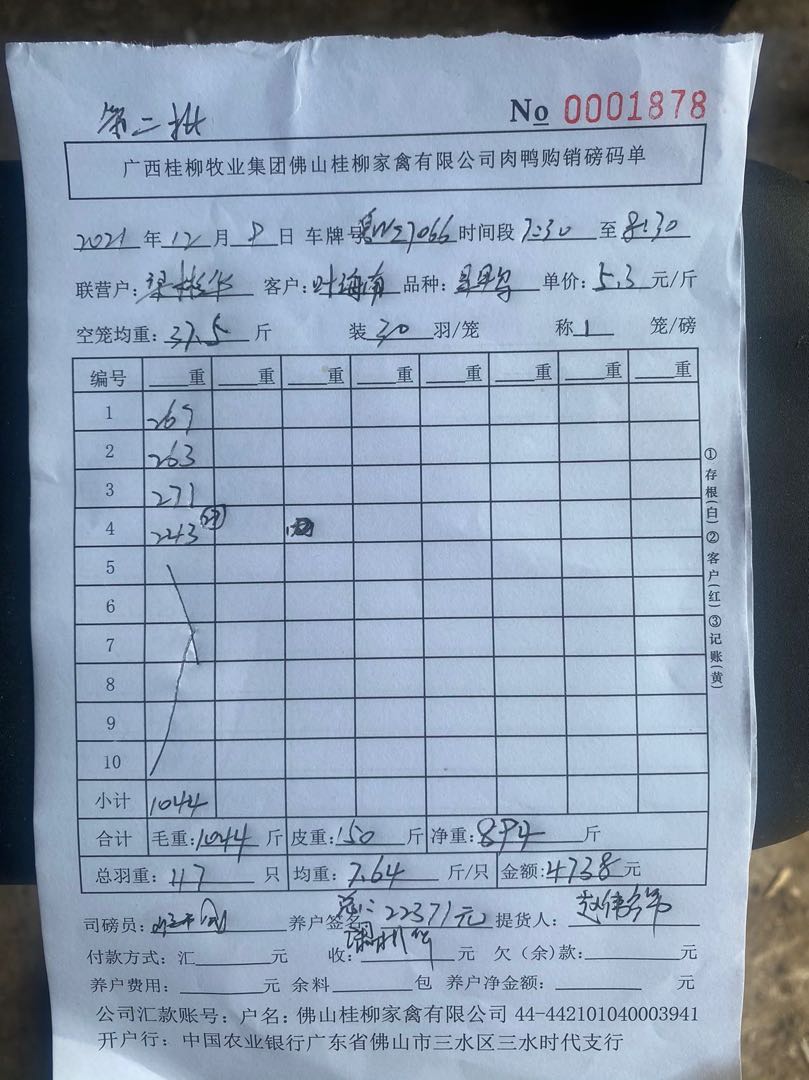 第二批
No 0001878
广西桂柳牧业集团佛山桂柳家禽有限公司肉鸭购销磅码单
2021年12月8日 车牌号 WZ7066 时间段 7:30 至 8:30
联营户: 客户:叶海南 品种: 单价:5.3元/斤
空笼均重:37.5斤 装30羽/笼 称1笼/磅
编号 重 重 重 重 重 重 重 重
1 267
2 263
3 271
4 243 (27)
5
6
7
8
9
10
小计 1044
合计 毛重:1044斤 皮重:150斤 净重:894斤
总羽重:117只 均重:7.64斤/只 金额:4738元
总:22371元
司磅员: 养户签名: 提货人:
付款方式:汇 元 收: 元 欠(余)款: 元
养户费用: 元 余料 包 养户净金额: 元
公司汇款账号:户名:佛山桂柳家禽有限公司 44-442101040003941
开户行:中国农业银行广东省佛山市三水区三水时代支行
①存根(白)②客户(红)③记账(黄)